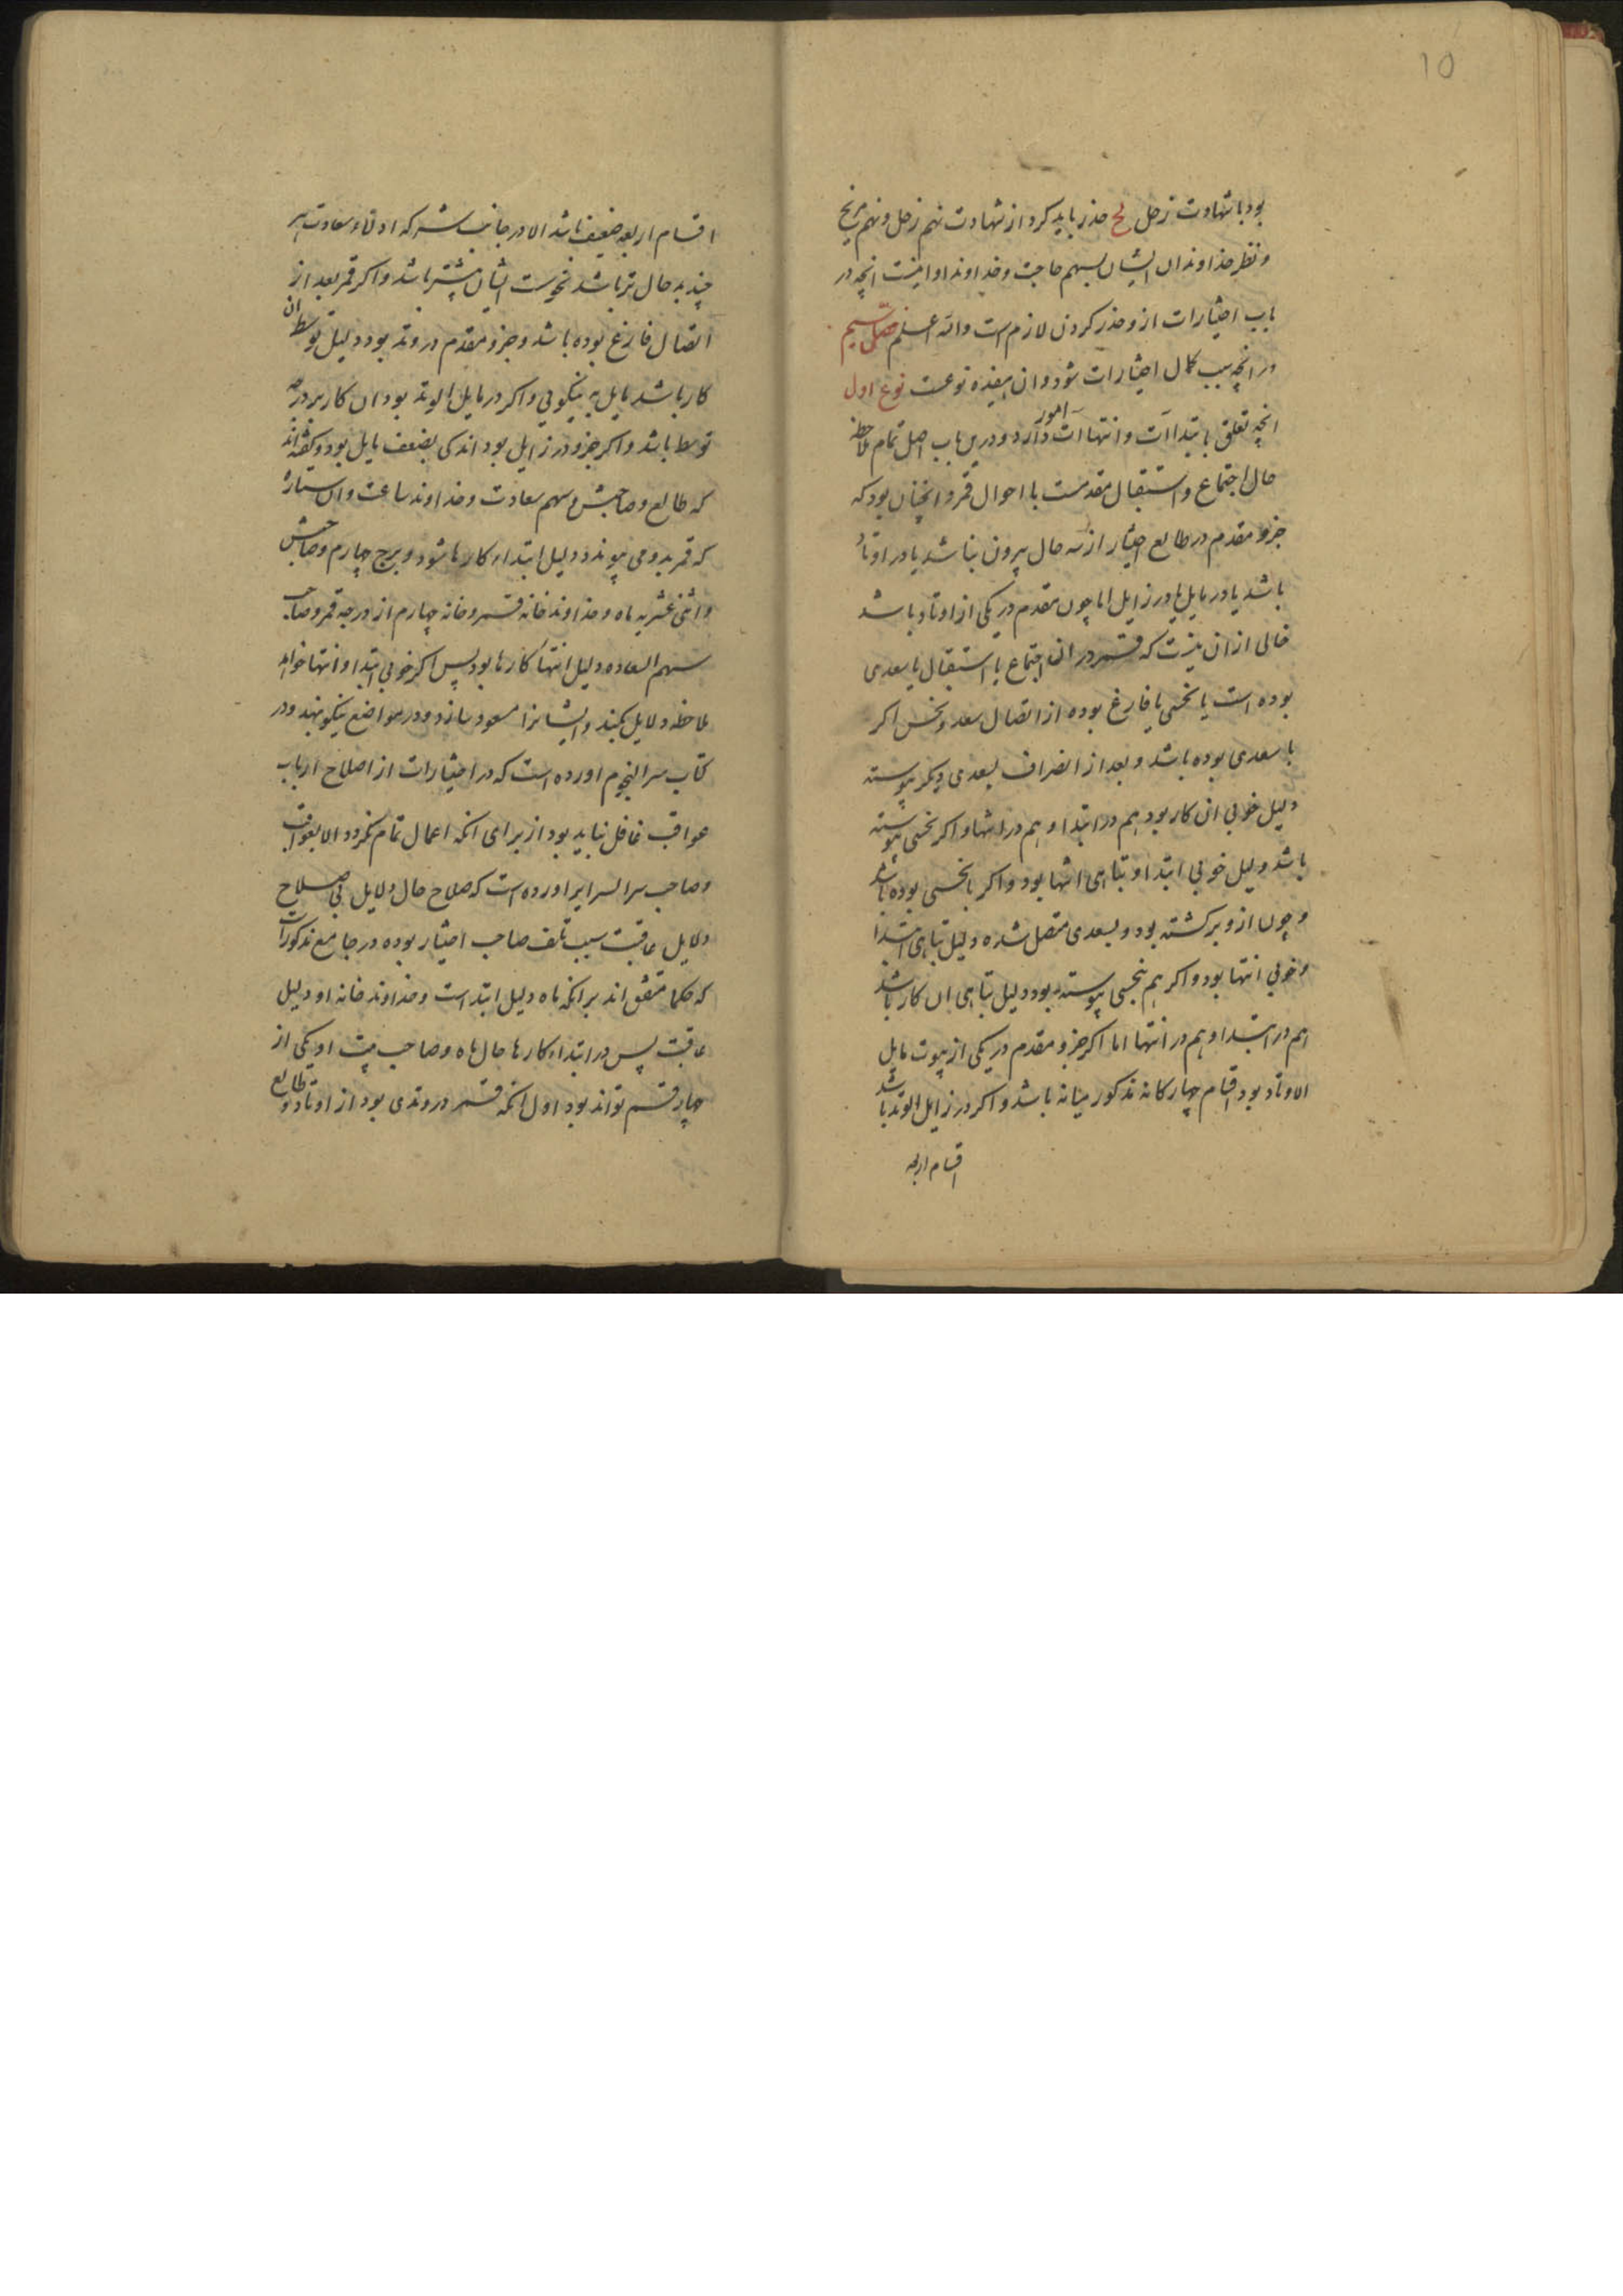 10
بود با شهادت زحل لح حذر باید کرد از شهادت نهم زحل و نهم مریخ
و نظر خداوندان ایشان بسهم حاجت و خداوند او اینست انچه در
باب اختیارات ازو حذر کردن لازم است والله اعلم فصل سیم
در انچه سبب کمال اختیارات شود و ان هفده نوعست نوع اول
انچه تعلق بابتداآت و انتهاات امور دارد و درین باب اصل تمام ملاحظه
حال اجتماع و استقبال مقدمست با احوال قمر و انچنان بود که
جزو مقدم در طالع اختیار از سه حال بیرون نباشد یا در اوتاد
باشد یا در مایل یا در زایل اما چون مقدم در یکی از اوتاد باشد
خالی ازان نیست که قمر در ان اجتماع یا استقبال یا بسعدی
بوده است یا نحسی یا فارغ بوده از اتصال سعد و نحس اکر
با سعدی بوده باشد و بعد از انصراف بسعدی دیکر پیوسته
دلیل خوبی ان کار بود هم در ابتدا و هم در انتها و اکر نحسی پیوسته
باشد دلیل خوبی ابتدا و تباهی انتها بود و اکر با نحسی بوده باشد
و چون ازو برکشته بود و بسعدی متصل شده دلیل تباهی ابتدا
و خوبی انتها بود و اکر هم بنحسی پیوسته بود دلیل تباهی ان کار باشد
هم در ابتدا و هم در انتها اما اکر جزو مقدم در یکی از بیوت مایل
الاوتاد بود اقسام چهارکانه مذکور میانه باشد و اکر در زایل الوتد باشد
اقسام اربعه
اقسام اربعه ضعیف باشد الا در جانب شر که اوتاد سعادت هر
چند بدحال تر باشد نحوست ایشان بیشتر باشد و اکر قمر بعد از
اتصال فارغ بوده باشد و جزو مقدم در وتد بود دلیل توسط ان
کار باشد مایل به نیکویی و اکر در مایل الوتد بود ان کار بر درجه
توسط باشد و اکر جزو در زایل بود اندکی بضعف مایل بود و کفته‌اند
که طالع و صاحبش و سهم سعادت و خداوند ساعت و ان ستاره
که قمر بدو می پیوندد دلیل ابتداء کارها شود و برج چهارم و صاحبش
و اثنی عشریه ماه و خداوند خانه قمر و خانه چهارم از درجه قمر و صاحب
سهم السعاده دلیل انتهاء کارها بود پس اکر خوبی ابتدا و انتها خواهد
ملاحظه دلایل بکند و ایشانرا مسعود سازد و در مواضع نیکو نهد و در
کتاب سر النجوم اورده است که در اختیارات از اصلاح ارباب
عواقب غافل نباید بود از برای انکه اعمال تمام نکردد الا بعواقب
و صاحب سر السرایر اورده است که صلاح حال دلایل بی صلاح
دلایل عاقبت سبب تلف صاحب اختیار بوده در جامع مذکورات
که حکما متفق اند بر انکه ماه دلیل ابتداست و خداوند خانه او دلیل
عاقبت پس در ابتداء کارها حال ماه و صاحب بیت او یکی از
چهار قسم تواند بود اول انکه قمر در وتدی بود از اوتاد و طالع